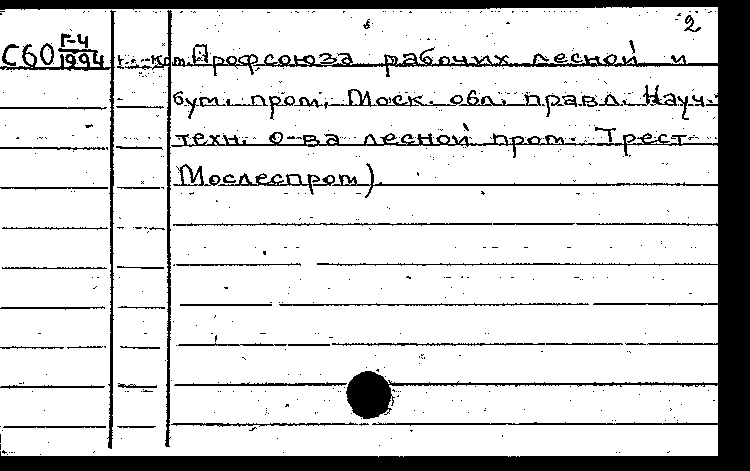 2
С60 Г-4
1994
Профсоюза рабочих лесной и
бум. пром., Моск. обл. правл. Науч.-
техн. о-ва лесной пром. Трест
Мослеспром).